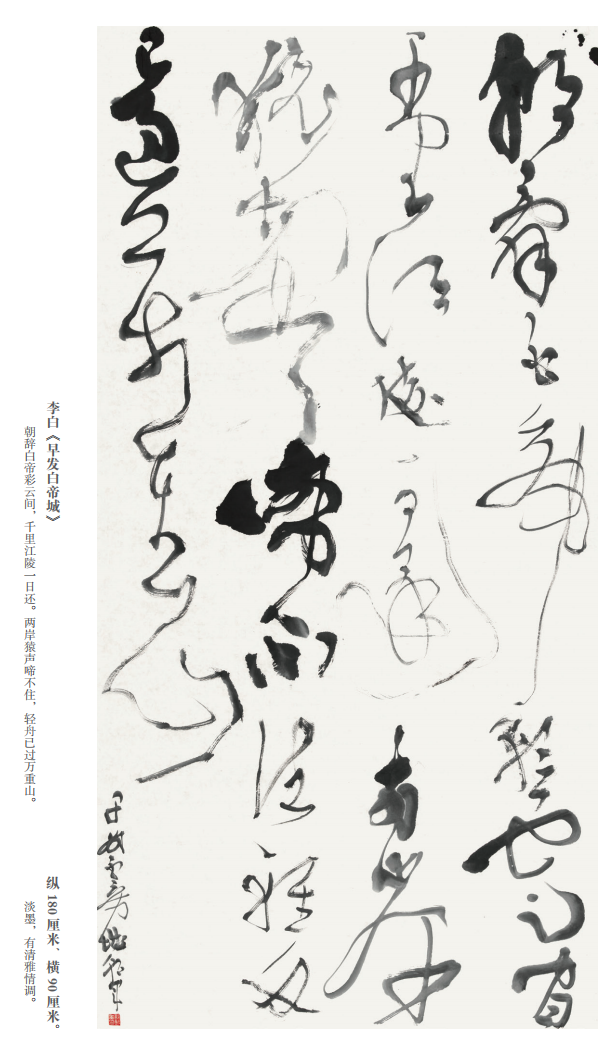 朝辞白帝彩云间
千里江陵一日还两岸
猿声啼不住轻舟
已过万重山
早发白帝城
李白《早发白帝城》
朝辞白帝彩云间，千里江陵一日还。两岸猿声啼不住，轻舟已过万重山。
纵 180 厘米、横 90 厘米。
淡墨，有清雅情调。